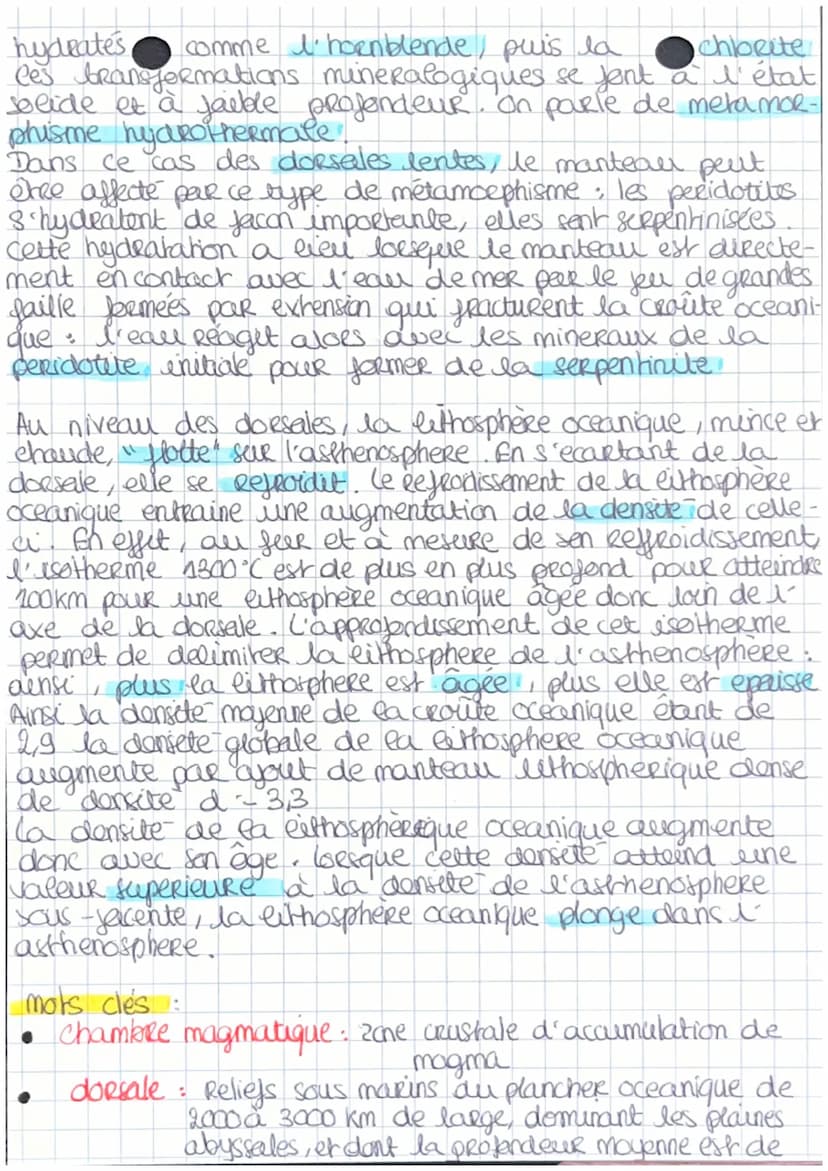 hydratés comme l'hornblende, puis la chlorite
Ces transformations mineralogiques se font à l'état
solide et à faible profondeur. On parle de metamor-
phisme hydrothermale.
Dans ce cas des dorsales lentes, le manteau peut
être affecté par ce type de métamorphisme : les peridotites
s'hydratent de facon importante, elles sont serpentinisées.
Cette hydratation a lieu lorsque le manteau est directe-
ment en contact avec l'eau de mer par le jeu de grandes
faille formées par extension qui fracturent la croûte océani-
que : l'eau réagit alors avec les mineraux de la
peridotite initiale pour former de la serpentinite

Au niveau des dorsales, la lithosphère oceanique, mince et
chaude, "flotte" sur l'asthenosphere. En s'ecartant de la
dorsale, elle se refroidit. Le refroidissement de la lithosphère
oceanique entraine une augmentation de la densité de celle-
ci. En effet, au fur et à mesure de son reffroidissement,
l'isotherme 1300°C est de plus en plus profond pour atteindre
100km pour une lithosphère oceanique âgée donc loin de l'
axe de la dorsale. L'approfondissement de cet isotherme
permet de delimiter la lithosphere de l'asthenosphère :
ainsi, plus la lithosphere est âgée, plus elle est epaisse
Ainsi la densité moyenne de la croûte oceanique étant de
2,9 la densité globale de la lithosphere oceanique
augmente par ajout de manteau lithospherique dense
de densité d = 3,3
La densité de la lithosphèrique oceanique augmente
donc avec son âge. Lorsque cette densité atteind une
valeur superieure à la densité de l'asthenosphere
sous-jacente, la lithosphère oceanique plonge dans l'
asthenosphere.

mots clés :
• chambre magmatique : zone crustale d'accumulation de
magma
• dorsale : Reliefs sous marins du plancher oceanique de
2000 à 3000 km de large, dominant les plaines
abyssales, et dont la profondeur moyenne est de